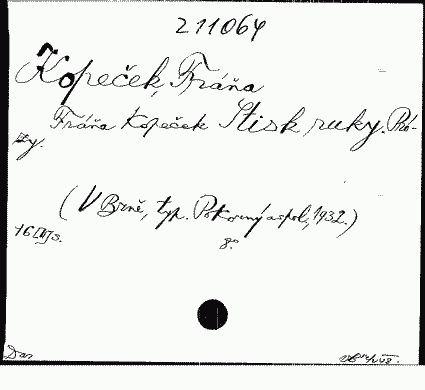 211064
Kopeček, Fráňa
Fráňa Kopeček Stisk ruky. Pró-
zy.
(V Brně, typ. Pokorný a spol, 1932.)
16 [II] s. 8°.
Dar